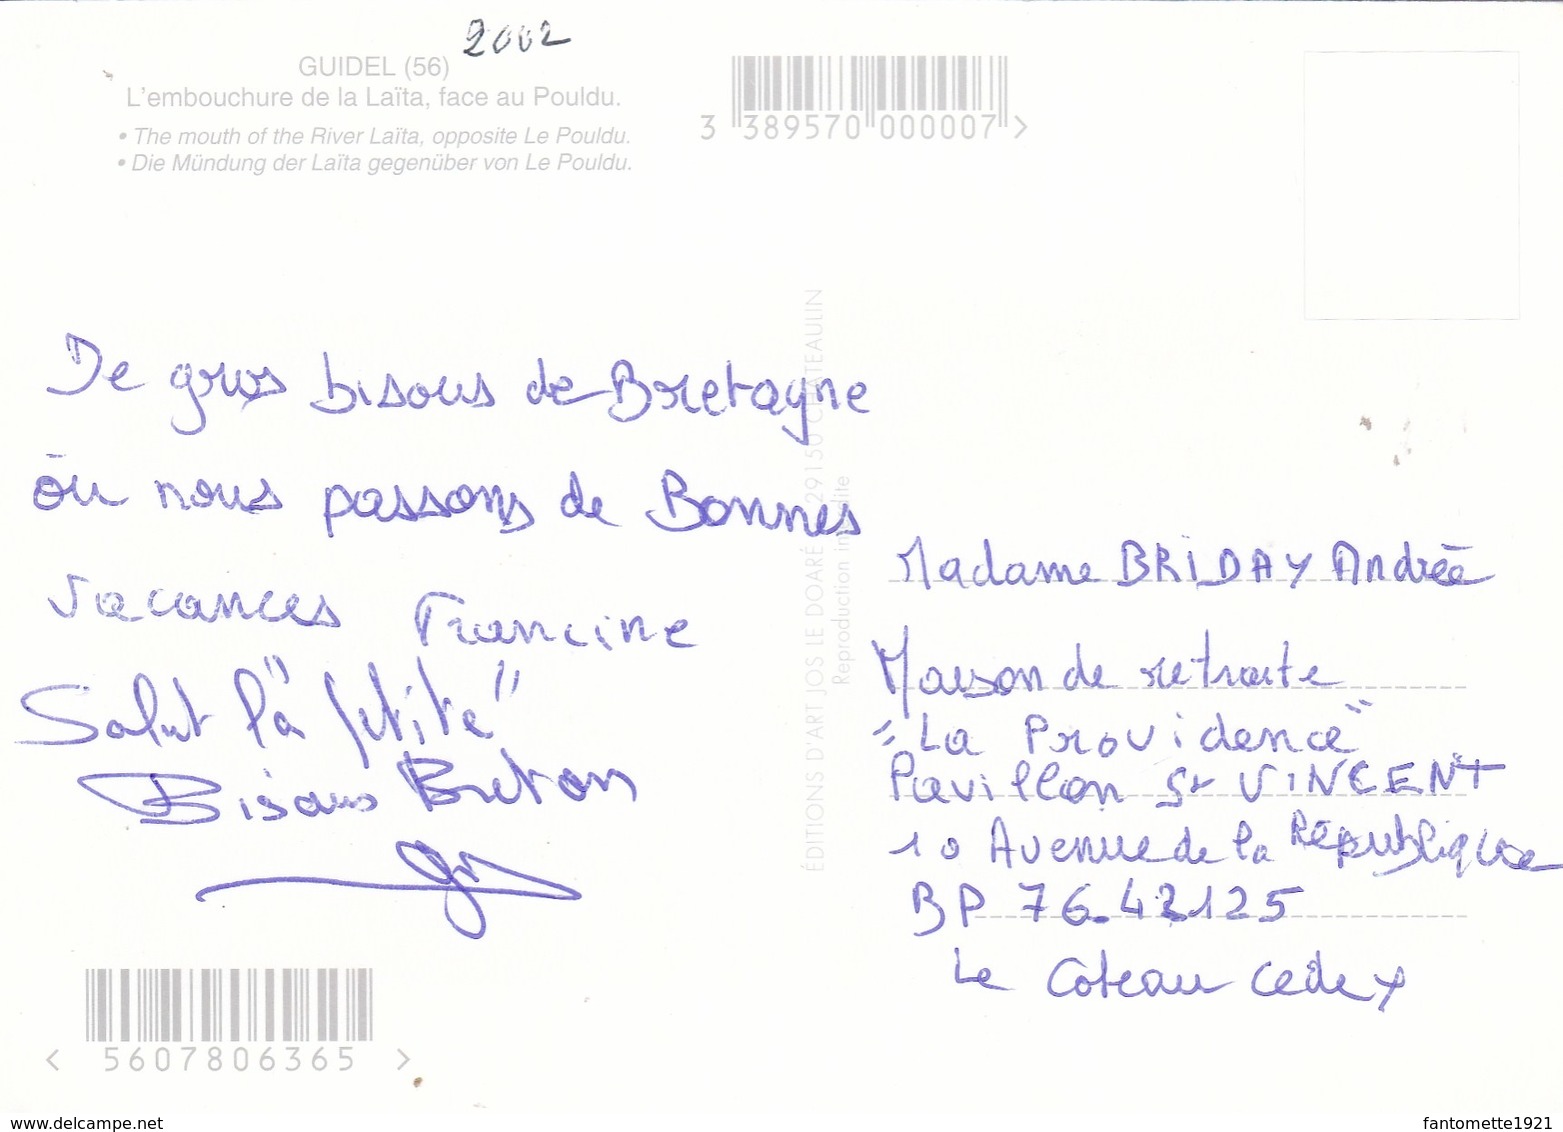 2002
GUIDEL (56)
L'embouchure de la Laïta, face au Pouldu.
• The mouth of the River Laïta, opposite Le Pouldu.
• Die Mündung der Laïta gegenüber von Le Pouldu.
3 389570 000007 >
De gros bisous de Bretagne
où nous passons de Bonnes
vacances Francine
Salut la "petite"
Bisous Breton
ÉDITIONS D'ART JOS LE DOARÉ 29150 CHÂTEAULIN
Reproduction interdite
Madame BRIDAY Andrée
Maison de retraite
"La Providence"
Pavillon St VINCENT
10 Avenue de la République
BP 76.42125
Le Coteau Cedex
< 5607806365 >
www.delcampe.net
fantomette1921